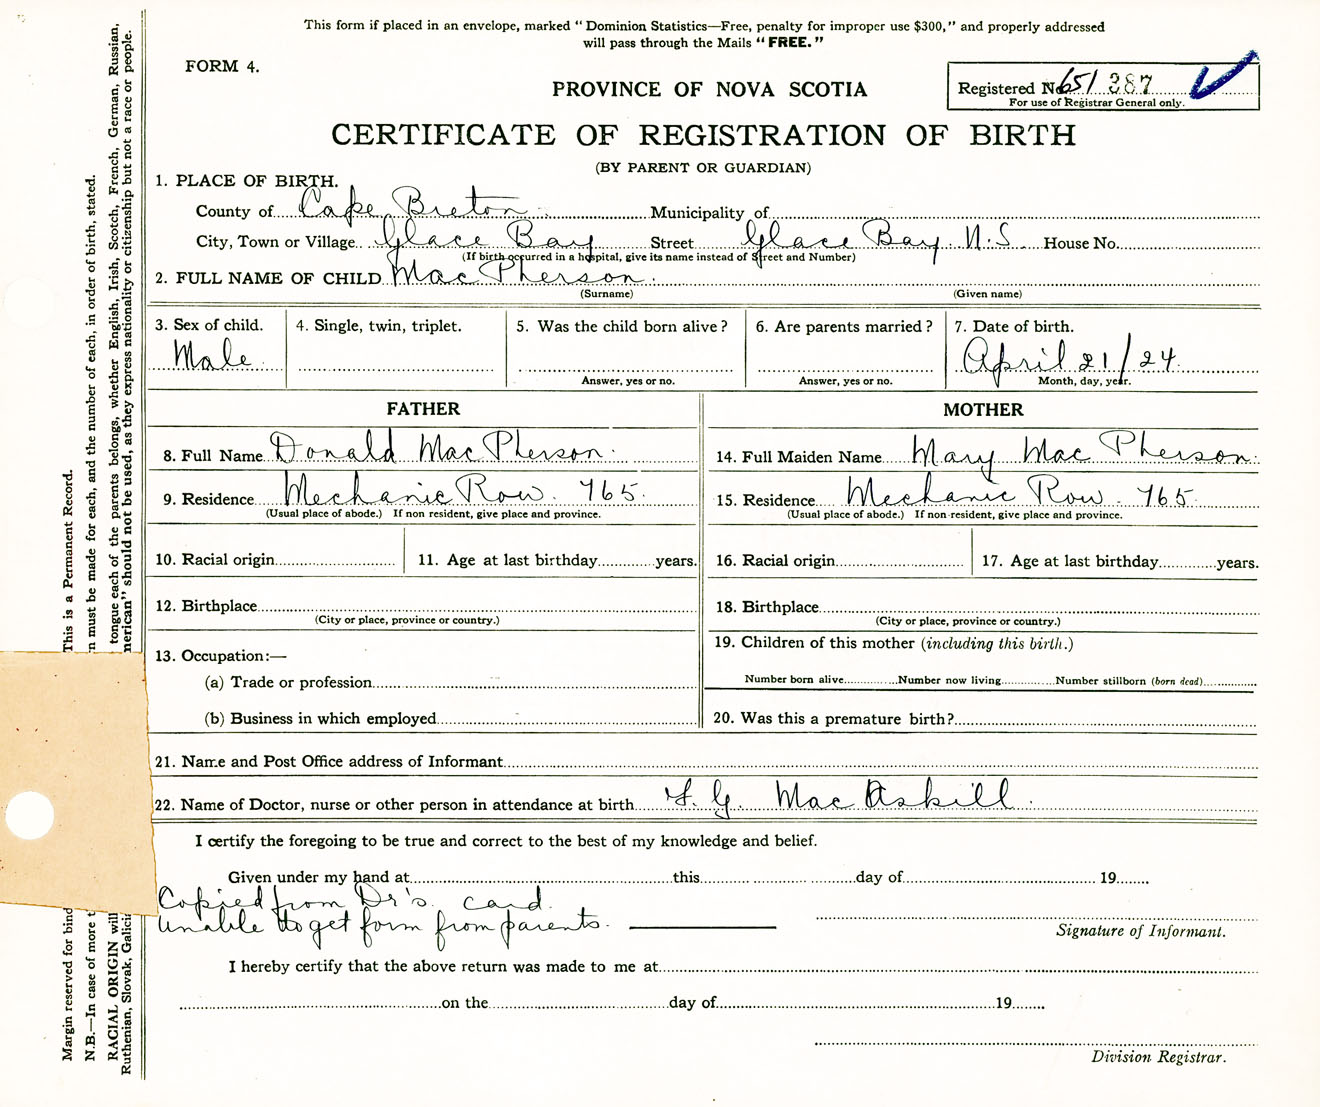 This form if placed in an envelope, marked “ Dominion Statistics—Free, penalty for improper use $300,” and properly addressed
will pass through the Mails “ FREE. ”
FORM 4.
PROVINCE OF NOVA SCOTIA
Registered No. 651 387
For use of Registrar General only.
CERTIFICATE OF REGISTRATION OF BIRTH
(BY PARENT OR GUARDIAN)
1. PLACE OF BIRTH.
County of Cape Breton Municipality of
City, Town or Village Glace Bay Street Glace Bay N.S. House No.
(If birth occurred in a hospital, give its name instead of Street and Number)
2. FULL NAME OF CHILD MacPherson.
(Surname) (Given name)
3. Sex of child. 4. Single, twin, triplet. 5. Was the child born alive? 6. Are parents married? 7. Date of birth.
Male. April 21/24.
Answer, yes or no. Answer, yes or no. Month, day, year.
FATHER MOTHER
8. Full Name Donald MacPherson. 14. Full Maiden Name Mary MacPherson.
9. Residence Mechanic Row. 765. 15. Residence Mechanic Row. 765.
(Usual place of abode.) If non resident, give place and province. (Usual place of abode.) If non-resident, give place and province.
10. Racial origin 11. Age at last birthday years. 16. Racial origin 17. Age at last birthday years.
12. Birthplace 18. Birthplace
(City or place, province or country.) (City or place, province or country.)
13. Occupation:— 19. Children of this mother (including this birth.)
(a) Trade or profession Number born alive Number now living Number stillborn (born dead)
(b) Business in which employed 20. Was this a premature birth?
21. Name and Post Office address of Informant
22. Name of Doctor, nurse or other person in attendance at birth MacAskill.
I certify the foregoing to be true and correct to the best of my knowledge and belief.
Given under my hand at this day of 19
Copied from Dr's. card.
Unable to get form from parents.
Signature of Informant.
I hereby certify that the above return was made to me at
on the day of 19
Division Registrar.
Margin reserved for This is a Permanent Record.
N.B.—In case of more must be made for each, and the number of each, in order of birth, stated.
RACIAL ORIGIN will tongue each of the parents belongs, whether English, Irish, Scotch, French, German, Russian,
Ruthenian, Slovak, should not be used, as they express nationality or citizenship but not a race or people.